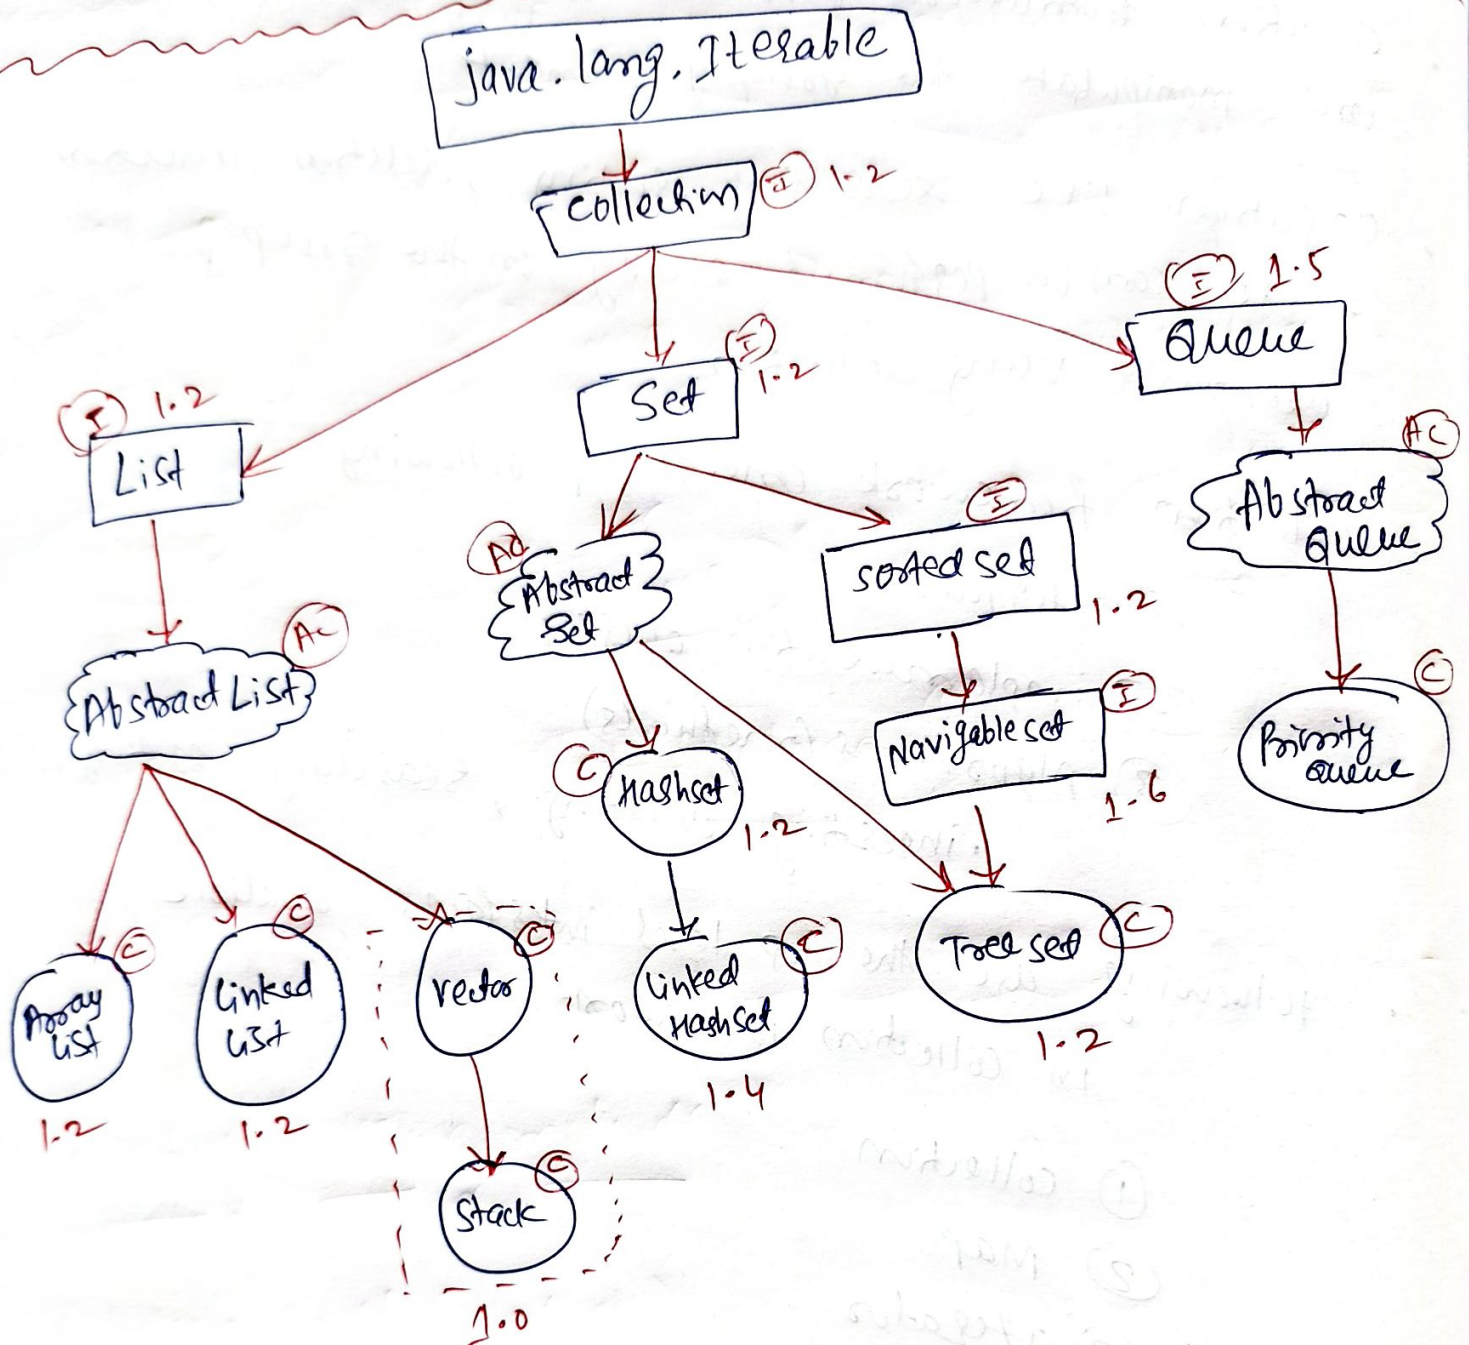 java.lang.Iterable
Collection I 1.2
I 1.5
Queue
I
Set 1.2
I 1.2
List
AC
Abstract
Queue
I
Sorted set
1.2
AC
Abstract
Set
AC
Abstract List
I
Navigable set
1.6
C
Priority
Queue
C
Hashset
1.2
C
Array
List
1.2
C
Linked
List
1.2
C
Vector
C
Linked
HashSet
1.4
C
Tree set
1.2
C
Stack
1.0